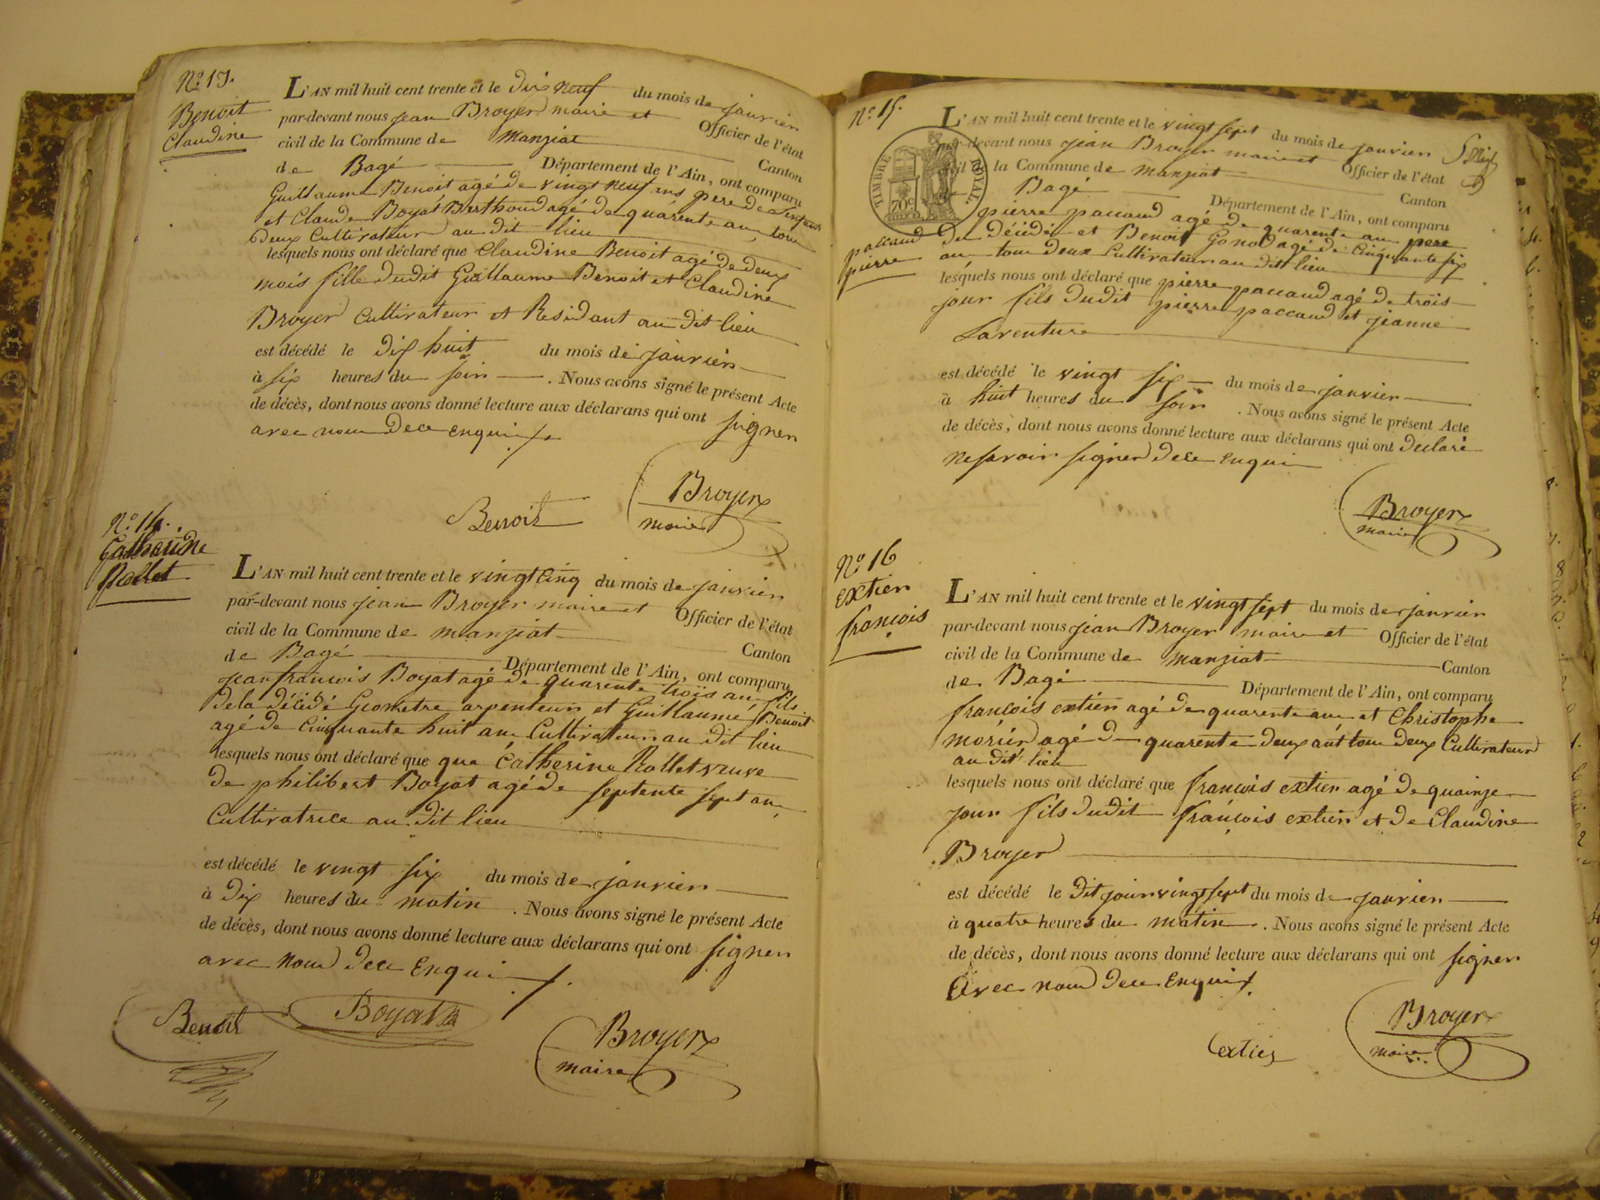 N° 13.
Benoit
Claudine
L'AN mil huit cent trente et le dix neuf du mois de janvier
par-devant nous jean Broyer maire et Officier de l'état
civil de la Commune de Manziat Canton
de Bagé Département de l'Ain, ont comparu
Guillaume Benoit agé de vingt neuf ans pere de
et Claude Boyat Berthoud agé de quarente an tous
deux Cultivateur au dit lieu
lesquels nous ont déclaré que Claudine Benoit agé de deux
mois fille dudit Guillaume Benoit et Claudine
Broyer Cultivateur et Residant au dit lieu
est décédé le dix huit du mois de janvier
à six heures du soir . Nous avons signé le présent Acte
de décès, dont nous avons donné lecture aux déclarans qui ont signer
avec nous dece enqui
Benoit
Broyer
maire
N° 14.
Catherine
Rollet
L'AN mil huit cent trente et le vingt Cinq du mois de janvier
par-devant nous jean Broyer maire et Officier de l'état
civil de la Commune de manziat Canton
de Bagé Département de l'Ain, ont comparu
jean francois Boyat agé de quarente trois an fils
dela décédé Geometre arpenteur et Guillaume Benoit
agé de Cinquante huit an Cultivateur au dit lieu
lesquels nous ont déclaré que que Catherine Rollet veuve
de philibert Boyat agé de septente sept an
Cultivatrice au dit lieu
est décédé le vingt six du mois de janvier
à dix heures du matin . Nous avons signé le présent Acte
de décès, dont nous avons donné lecture aux déclarans qui ont signer
avec nous dece enqui
Benoit
Boyat
Broyer
maire
N° 15.
paccaud
pierre
TIMBRE ROYAL
70c
L'AN mil huit cent trente et le vingt sept du mois de janvier
par-devant nous jean Broyer maire et Officier de l'état
civil de la Commune de manziat Canton
Bagé Département de l'Ain, ont comparu
pierre paccaud agé de quarente an pere
du décédé et Benoit Gonod agé de Cinquante six
an tous deux Cultivateur au dit lieu
lesquels nous ont déclaré que pierre paccaud agé de trois
jour fils dudit pierre paccaud et jeanne
Laventure
est décédé le vingt six du mois de janvier
à huit heures du soir . Nous avons signé le présent Acte
de décès, dont nous avons donné lecture aux déclarans qui ont declaré
ne savoir signer dece enqui
Broyer
maire
N° 16
extier
francois
L'AN mil huit cent trente et le vingt sept du mois de janvier
par-devant nous jean Broyer maire et Officier de l'état
civil de la Commune de manziat Canton
de Bagé Département de l'Ain, ont comparu
francois extier agé de quarente an et Christophe
morier agé de quarente deux an tous deux Cultivateur
au dit lieu
lesquels nous ont déclaré que francois extier agé de quainze
jour fils dudit francois extier et de Claudine
Broyer
est décédé le dit jour vingt sept du mois de janvier
à quatre heures du matin . Nous avons signé le présent Acte
de décès, dont nous avons donné lecture aux déclarans qui ont signer
avec nous dece enqui
extier
Broyer
maire